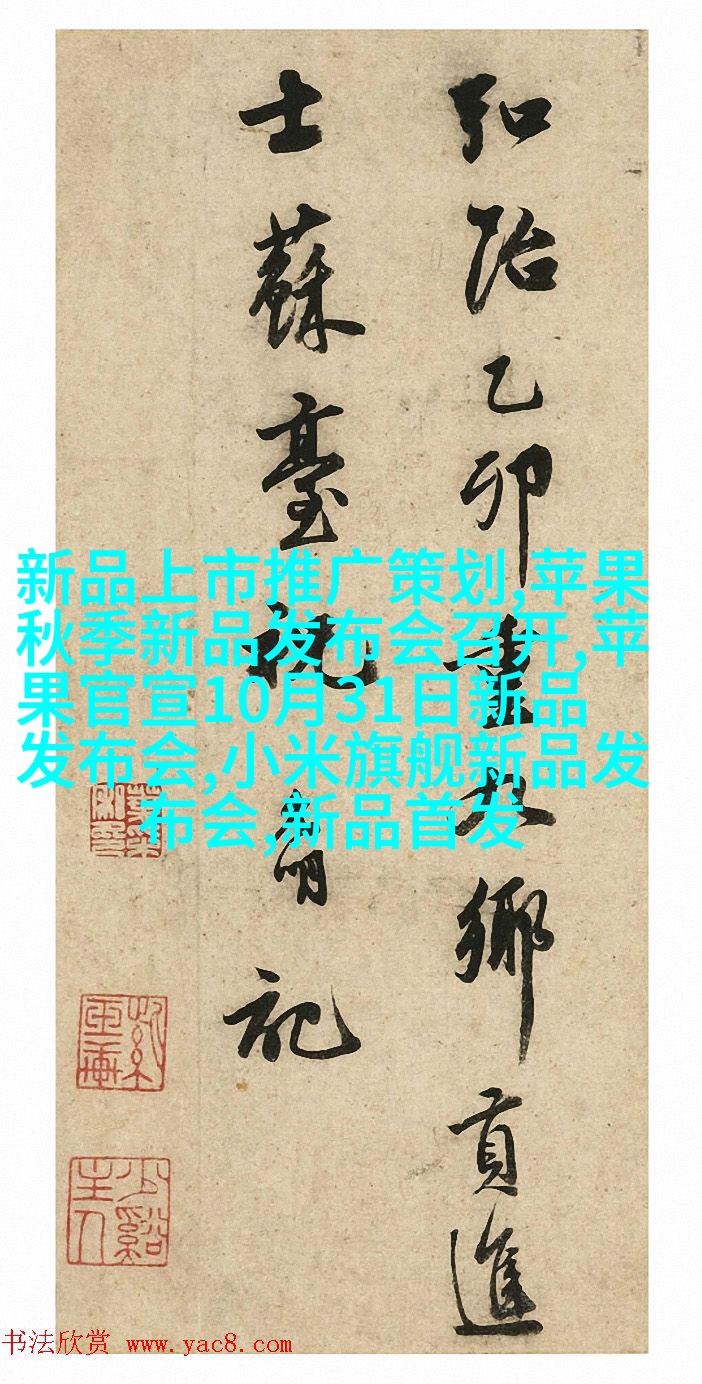 弘治乙卯重九鄉貢進
士蘇臺祝允明記
新品上市推广策划,苹果
秋季新品发布会召开,苹
果官宣10月31日新品
发布会,小米旗舰新品发
布会,新品首发
少谿
主人
书法欣赏 www.yac8.com